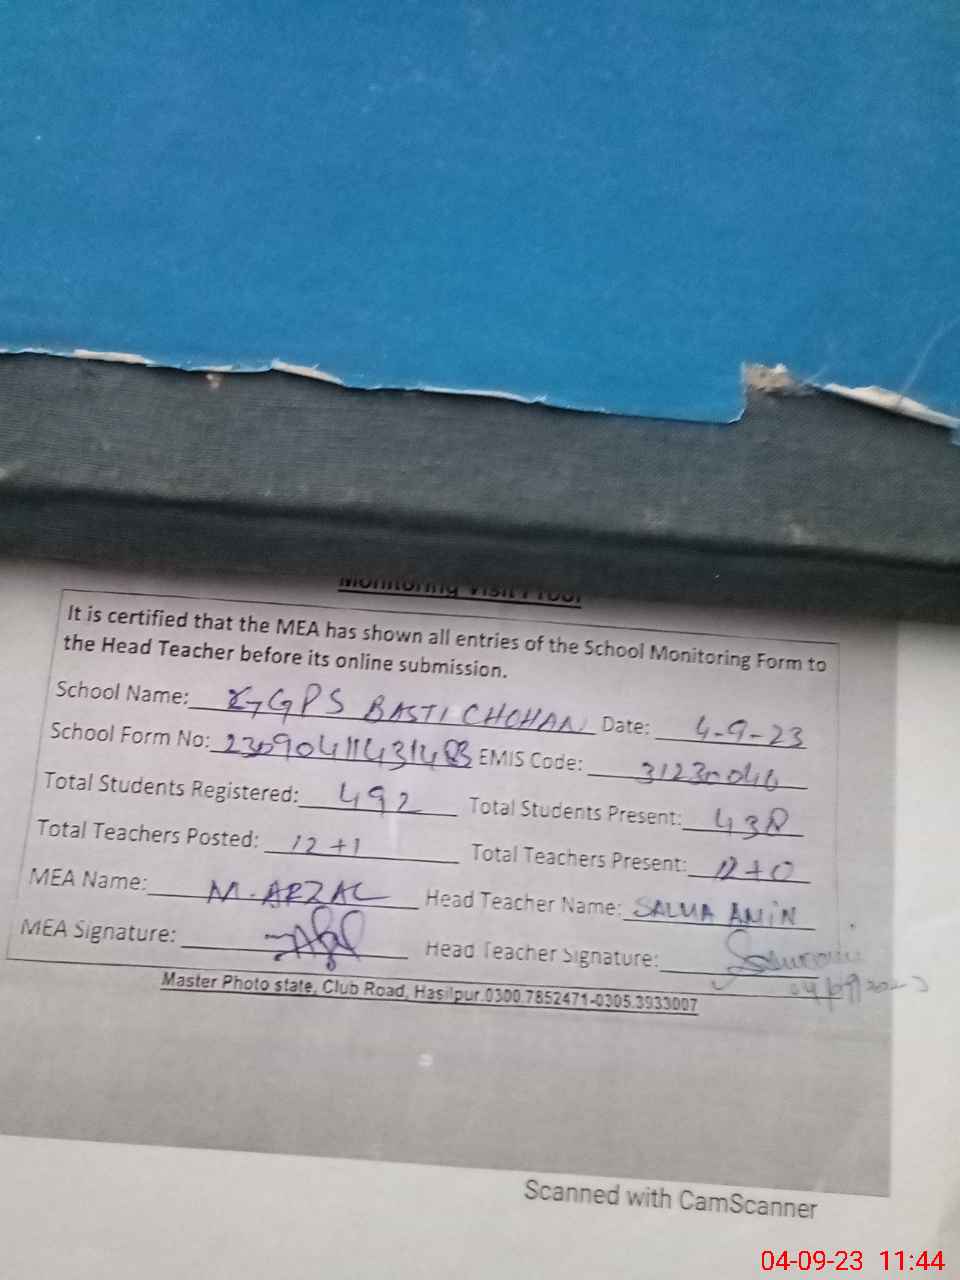 Monitoring Visit Proof
It is certified that the MEA has shown all entries of the School Monitoring Form to
the Head Teacher before its online submission.
School Name: GGPS BASTI CHOHAN Date: 4-9-23
School Form No: EMIS Code:
Total Students Registered: 492 Total Students Present: 438
Total Teachers Posted: 12+1 Total Teachers Present: 12+0
MEA Name: M. ARZAL Head Teacher Name: SALMA AMiN
MEA Signature: Head Teacher Signature:
04/09/2023
Master Photo state, Club Road, Hasilpur.0300.7852471-0305.3933007
Scanned with CamScanner
04-09-23 11:44